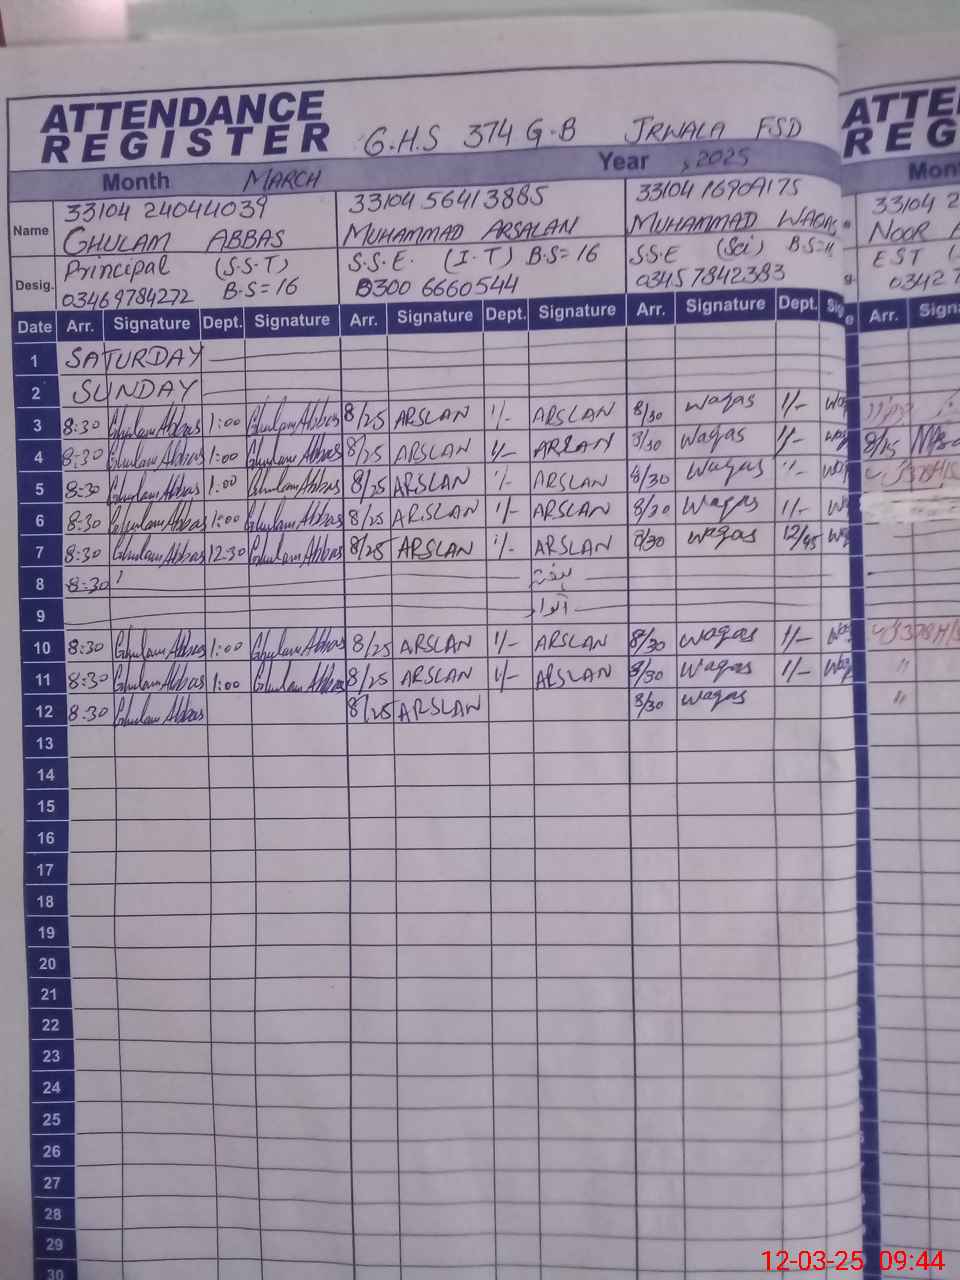 ATTENDANCE
REGISTER
G.H.S 374 G.B JRWALA FSD
Month MARCH Year 2025
Name 33104 24044039 33104 56413885 33104 1690A175 33104 2
GHULAM ABBAS MUHAMMAD ARSALAN MUHAMMAD WAQAS NOOR
Desig. Principal (S.S.T) S.S.E. (I.T) B.S=16 S.S.E (Sci) B.S=16 EST
03469784272 B.S=16 0300 6660544 03457842383 0342
Date Arr. Signature Dept. Signature Arr. Signature Dept. Signature Arr. Signature Dept. Sig Arr. Signa
1 SATURDAY
2 SUNDAY
3 8:30 Ghulam Abbas 1:00 Ghulam Abbas 8/25 ARSLAN 1/- ARSLAN 8/30 waqas 1/- waq
4 8:30 Ghulam Abbas 1:00 Ghulam Abbas 8/25 ARSLAN 1/- ARSLAN 8/30 waqas 1/- waq 8/15
5 8:30 Ghulam Abbas 1:00 Ghulam Abbas 8/25 ARSLAN 1/- ARSLAN 8/30 waqas 1/- waq
6 8:30 Ghulam Abbas 1:00 Ghulam Abbas 8/25 ARSLAN 1/- ARSLAN 8/30 waqas 1/- wa
7 8:30 Ghulam Abbas 12:30 Ghulam Abbas 8/25 ARSLAN 1/- ARSLAN 8/30 waqas 12/45 waq
8 8:30 ہفتہ
9 اتوار
10 8:30 Ghulam Abbas 1:00 Ghulam Abbas 8/25 ARSLAN 1/- ARSLAN 8/30 waqas 1/- waq
11 8:30 Ghulam Abbas 1:00 Ghulam Abbas 8/25 ARSLAN 1/- ARSLAN 8/30 waqas 1/- waq "
12 8:30 Ghulam Abbas 8/25 ARSLAN 8/30 waqas "
13
14
15
16
17
18
19
20
21
22
23
24
25
26
27
28
29
30
ATTE
REG
Mon
12-03-25 09:44